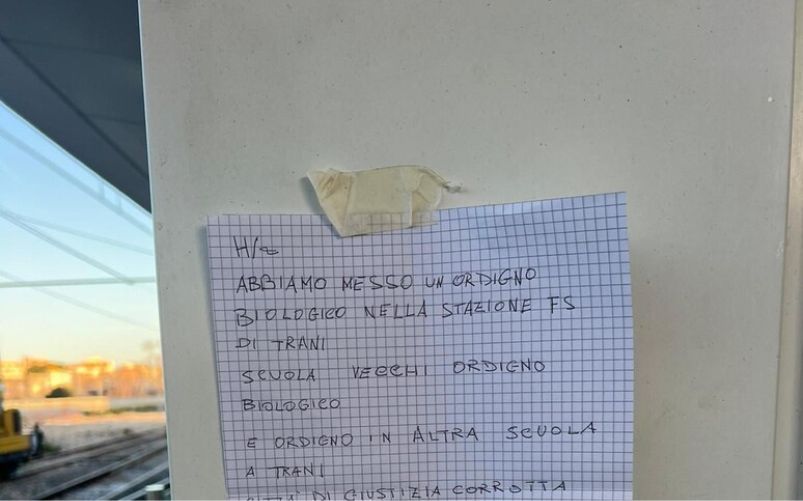 H/
ABBIAMO MESSO UN ORDIGNO
BIOLOGICO NELLA STAZIONE FS
DI TRANI
SCUOLA VECCHI ORDIGNO
BIOLOGICO
E ORDIGNO IN ALTRA SCUOLA
A TRANI
DI GIUSTIZIA CORROTTA